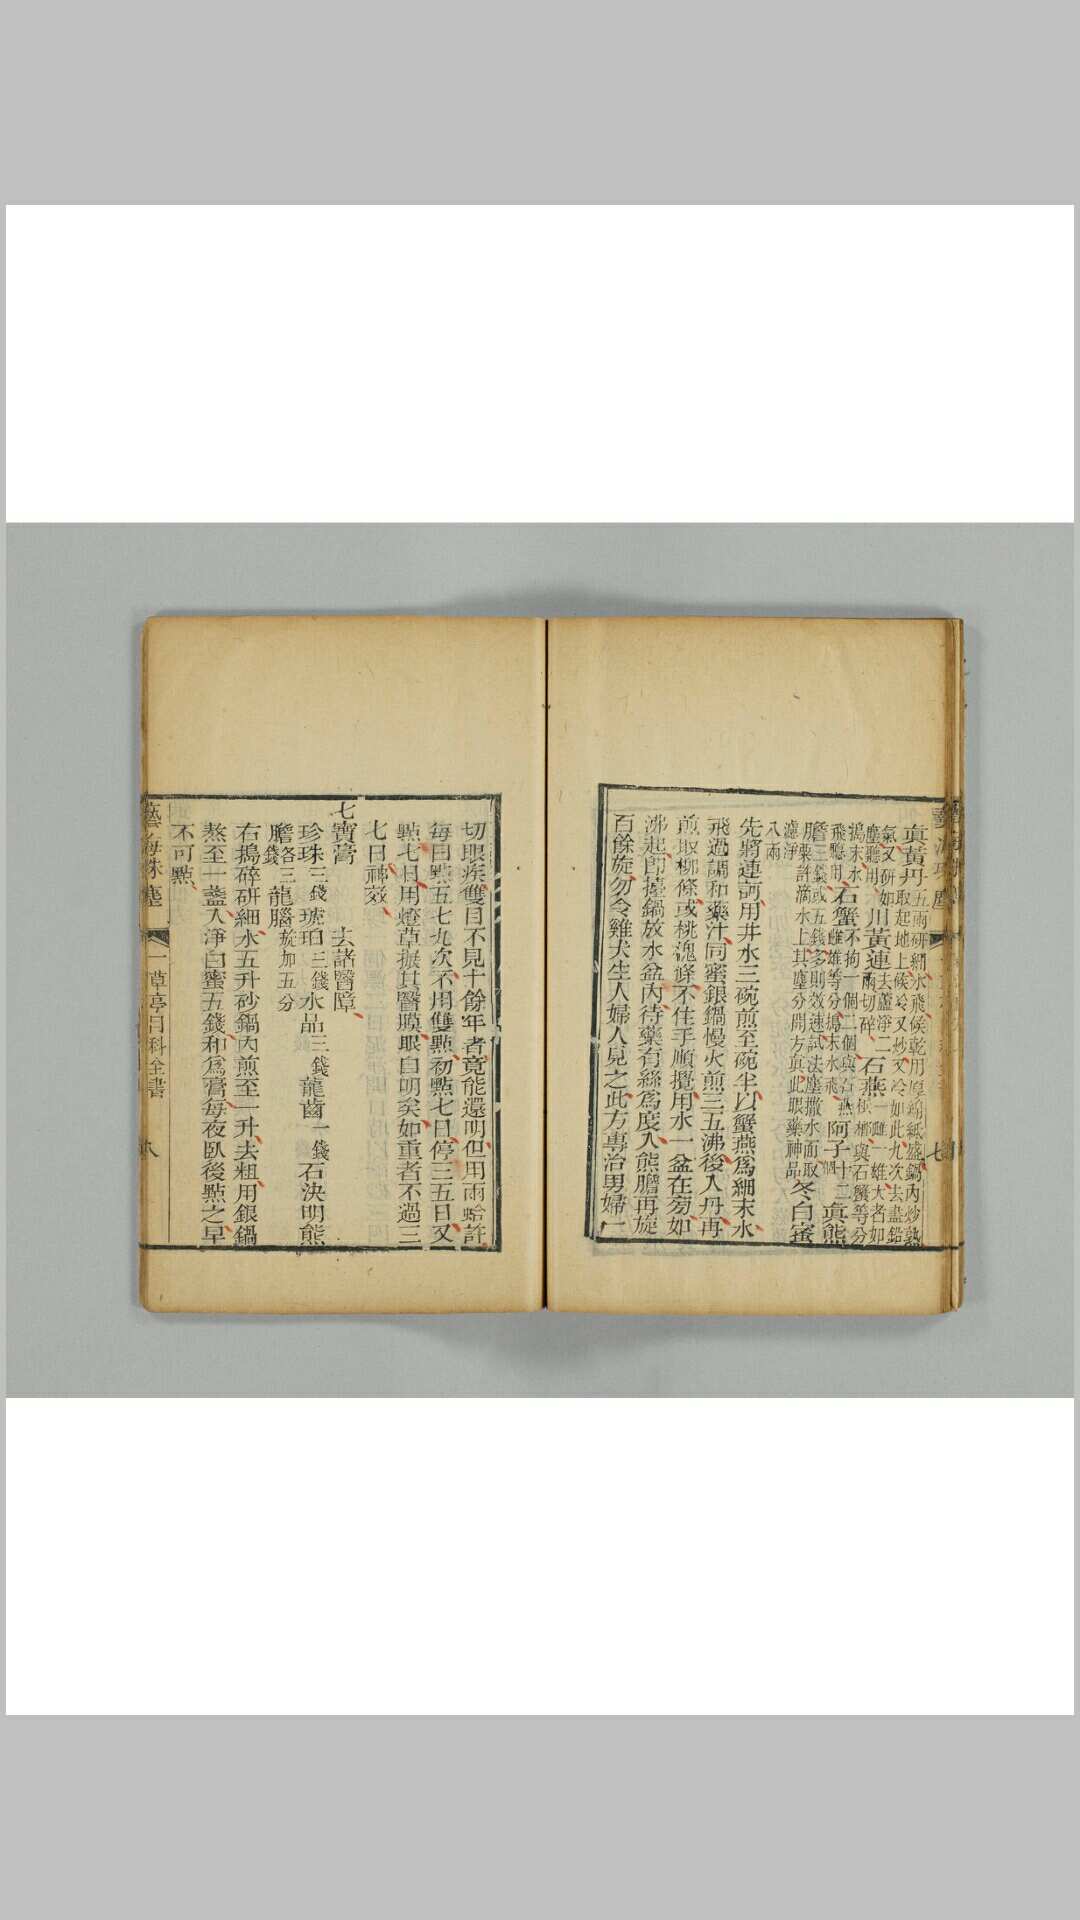 眞黃丹五兩研細水飛候乾用厚綿紙盛鍋內炒熟
取起地上候冷又炒又冷如此九次去盡鉛
氣又研如
塵聽用川黃連去蘆淨二
兩切碎石燕一雌一雄大者如
無極細與石蟹等分
搗末水
飛聽用石蟹不拘一個二個與石燕
雌雄等分搗末水飛訶子十二
個眞熊
膽三錢或五錢多則效速試法塵撒水面取
膽粟許滴水上其塵分開方眞此眼藥神品冬白蜜
濾淨
八兩
先將連訶用井水三碗煎至碗半以蟹燕爲細末水
飛過調和藥汁同蜜銀鍋慢火煎三五沸後入丹再
煎取柳條或桃槐條不住手順攪用水一盆在旁如
沸起卽擡鍋放水盆內待藥有絲爲度入熊膽再旋
百餘旋勿令雞犬生人婦人見之此方專治男婦一
藝海珠塵
七
切眼疾雙目不見十餘年者竟能還明但用兩蛤許
每日點五七九次不用雙點初點七日停三五日又
點七日用燈草振其醫膜眼自明矣如重者不過三
七日神效
七寶膏 去諸醫障
珍珠三錢琥珀三錢水晶三錢龍齒一錢石決明熊
膽各三
錢龍腦旋加五分
右搗碎研細水五升砂鍋內煎至一升去粗用銀鍋
熬至一盞入淨白蜜五錢和爲膏每夜臥後點之早
不可點
藝海珠塵 一草亭目科全書 八